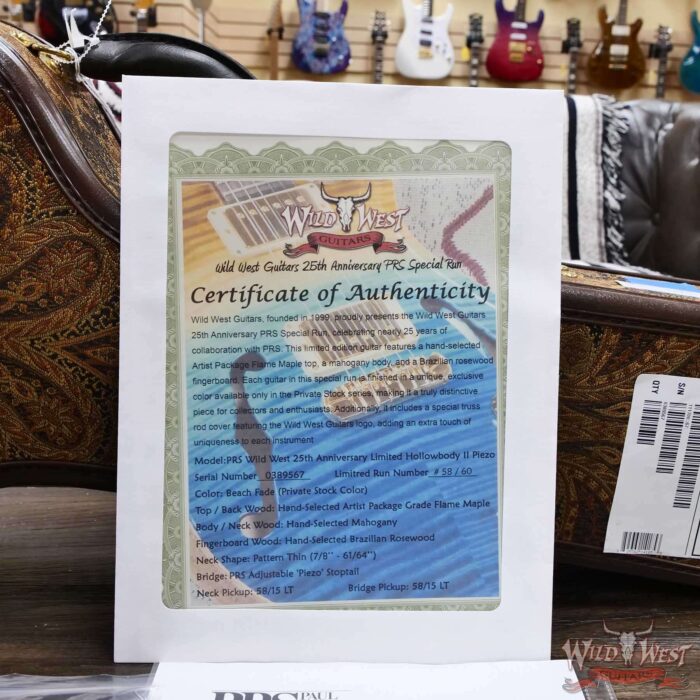 WILD WEST
GUITARS
Wild West Guitars 25th Anniversary PRS Special Run
Certificate of Authenticity
Wild West Guitars, founded in 1999, proudly presents the Wild West Guitars
25th Anniversary PRS Special Run, celebrating nearly 25 years of
collaboration with PRS. This limited edition guitar features a hand-selected
Artist Package Flame Maple top, a mahogany body, and a Brazilian rosewood
fingerboard. Each guitar in this special run is finished in a unique, exclusive
color available only in the Private Stock series, making it a truly distinctive
piece for collectors and enthusiasts. Additionally, it includes a special truss
rod cover featuring the Wild West Guitars logo, adding an extra touch of
uniqueness to each instrument
Model:PRS Wild West 25th Anniversary Limited Hollowbody II Piezo
Serial Number 0389567 Limitred Run Number # 58 / 60
Color: Beach Fade (Private Stock Color)
Top / Back Wood: Hand-Selected Artist Package Grade Flame Maple
Body / Neck Wood: Hand-Selected Mahogany
Fingerboard Wood: Hand-Selected Brazilian Rosewood
Neck Shape: Pattern Thin (7/8'' - 61/64'')
Bridge: PRS Adjustable 'Piezo' Stoptail
Neck Pickup: 58/15 LT Bridge Pickup: 58/15 LT
QTY
S/N
PRS PAUL
WILD WEST
GUITARS